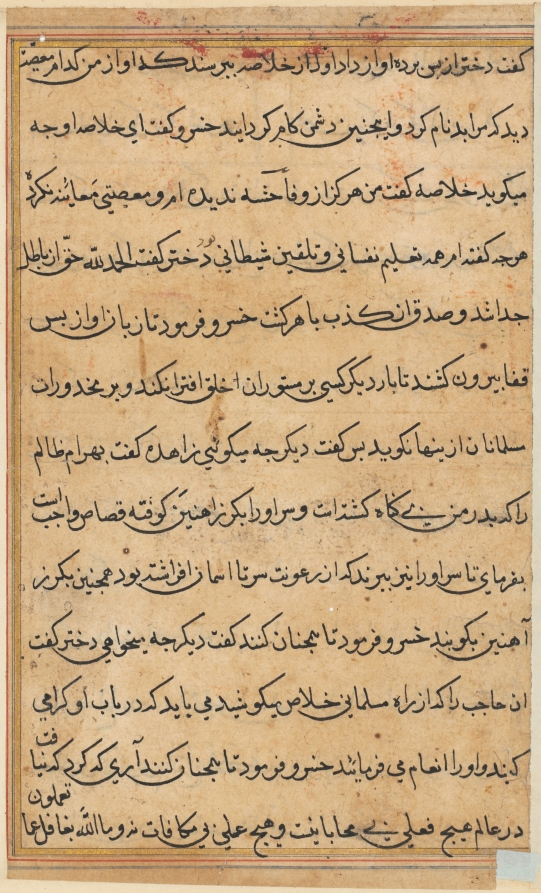 گفت دختر از پس پرده اواز داد اول از خلاصه بپرسند که او از من کدام معصیت
دید که مرا بد نام کرد و اینچنین دشمن کام کردایند خسرو گفت ای خلاصه او چه
میکوید خلاصه کفت من هرکز از و فاحشه ندیده ام و معصیتی معاینه نکرده
هرچه کفته ام همه تعلیم نفسانی و تلقین شیطانی بود دختر کفت الحمد لله حق از باطل
جدا شد و صدق از کذب باهر کشت خسرو فرمود تا زبان او از بس
قفا بیرون کشند تا بار دیگر کسی بر مستوران اخلق افترا نکند و بر مخدورات
مسلمانان ازینها نکوید بس کفت دیکر چه میکوئی زاهده کفت بهرام ظالم
را که بدر من بی کناه کشته است و سر او را بکرز اهنین کوفته قصاص واجب است
بفرمای تا سر او را نیز ببرند که از رعونت سر تا اسمان افراشته بود همچنین بکرز
آهنین بکوبند خسرو فرمود تا همچنان کنند کفت دیکر چه میخواهی دختر کفت
ان حاجب را که از راه مسلمانی خلاص میکوشید می باید که در باب او کرامی
کنند و او را انعام می فرمایند خسرو فرمود تا همچنان کنند آری که کرد که نیافت
در عالم هیچ فعلی بی محابا نیست و هیچ عملی بی مکافات نه وما الله بغافل عما تعملون